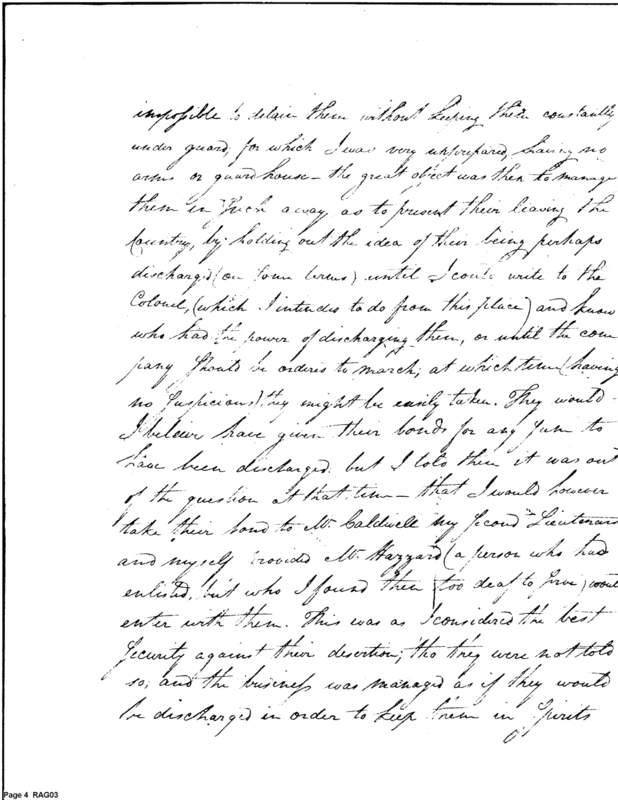 impossible to detain them without keeping them constantly
under guard, for which I was very unprepared, having no
arms or guardhouse – the great object was then to manage
them in such a way as to prevent their leaving the
Country, by holding out the idea of their being perhaps
discharged (on some terms) until I could write to the
Colonel, (which I intended to do from this place) and know
who had the power of discharging them, or until the com
pany should be ordered to march; at which time (having
no suspicions) they might be easily taken. They would
I believe have given their bonds for any sum to
have been discharged. but I told them it was out
of the question at that time – that I would however
take their bond to Mr. Caldwell my Second Lieutenant
and myself provided Mr. Hazzard (a person who had
enlisted, but who I found then too deaf to serve) would
enter with them. This was as I considered the best
Security against their desertion; tho they were not told
so; and the business was managed as if they would
be discharged in order to keep them in Spirits
Page 4 RAG03